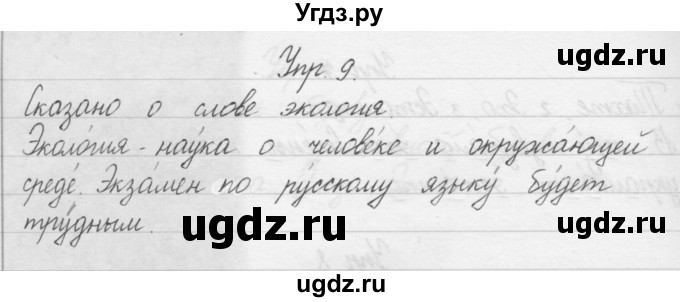 Угдз.ру
Упр 9.
Сказано о слове экология.
Эколо́гия - нау́ка о челове́ке и окружа́ющей
среде́. Экза́мен по ру́сскому языку́ бу́дет
тру́дным.
ugdz.ru ugdz.ru
ugdz.ru ugdz.ru